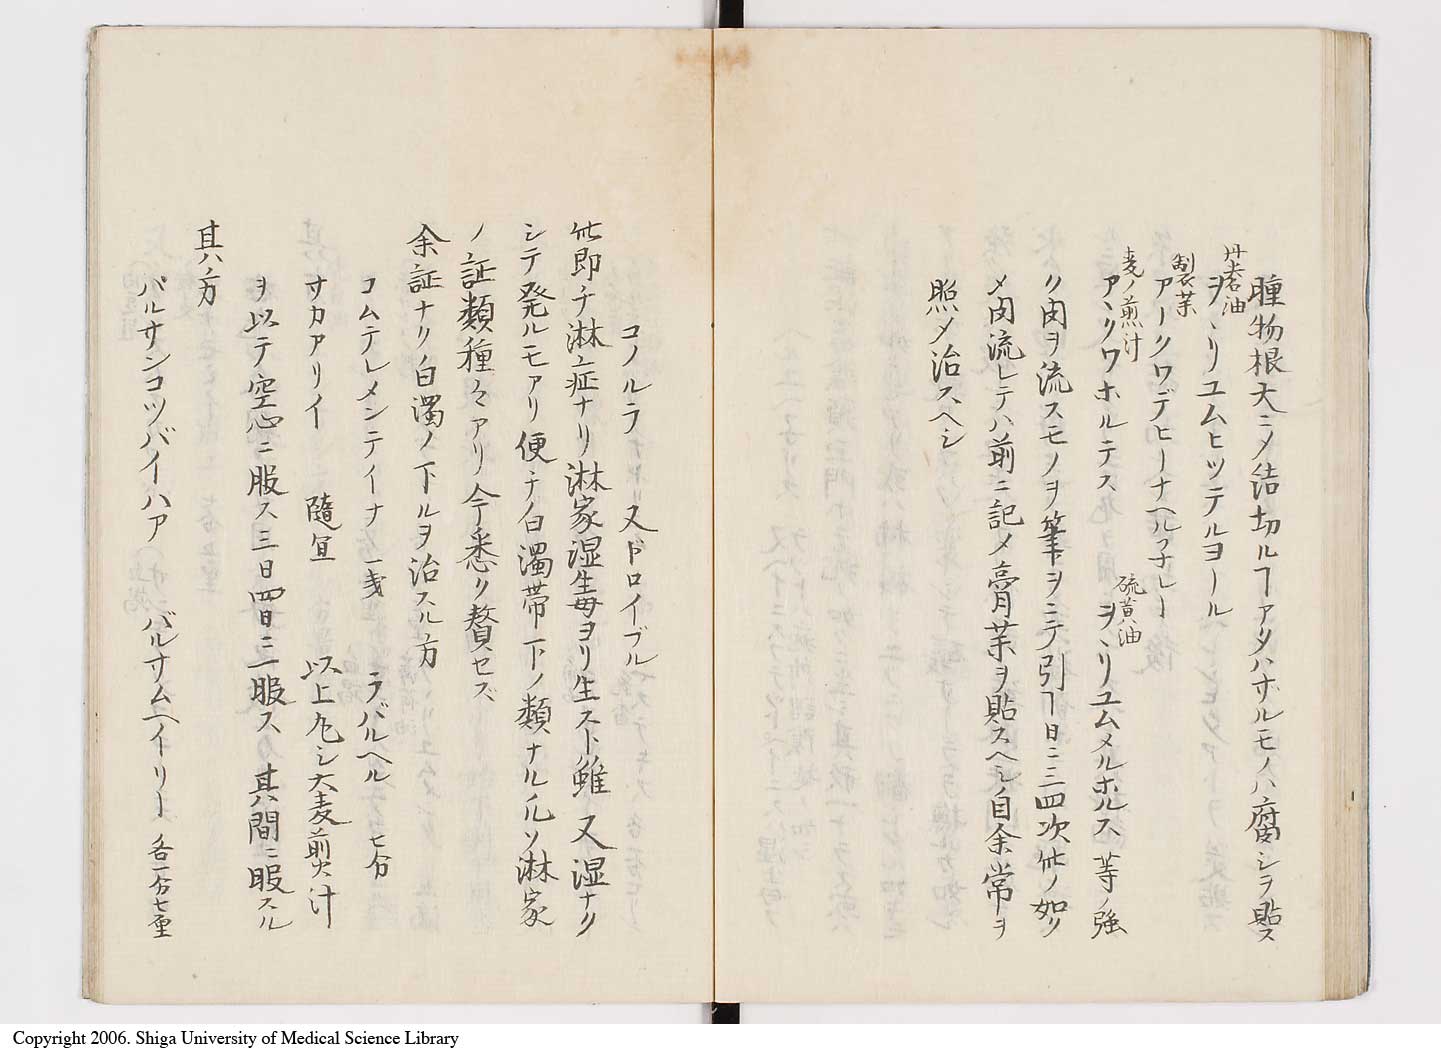 腫物根大ニ〆結切ルヿアタハサルモノハ腐シヲ貼ス
丹礬油
ヲヽリユムヒツテルヨール
製茉
アークワデヒーナヘルフナレー
麦ノ煎汁
アヽクワホルテス
硫黄油
ヲヽリユムメルホルス等ノ強
ク肉ヲ流スモノヲ筆ヲ以テ引ヿ日ニ三四次此ノ如ク
〆肉流レテハ前ニ記〆膏茉ヲ貼スヘシ自余常ヲ
照〆治スヘシ
コノルラ 又ドロイブル
此即チ淋症ナリ淋家湿毒ヨリ生スト雖 又湿ナク
シテ発ルモアリ便チノ白濁帯下ノ類ナル凡ソ淋家
ノ証類種々アリ今悉ク贅セズ
余証ナク白濁ノ下ルヲ治スル方
コムテレメンテイナ 一戔 ラバルヘル 七分
サカアリイ 隨宜 以上丸シ大麦煎汁
ヲ以テ空心ニ服ス三日四日ニ服ス 其間ニ服スル
其ノ方
バルサンコツバイハア バルサムヘイリー 各一分七厘
Copyright 2006. Shiga University of Medical Science Library